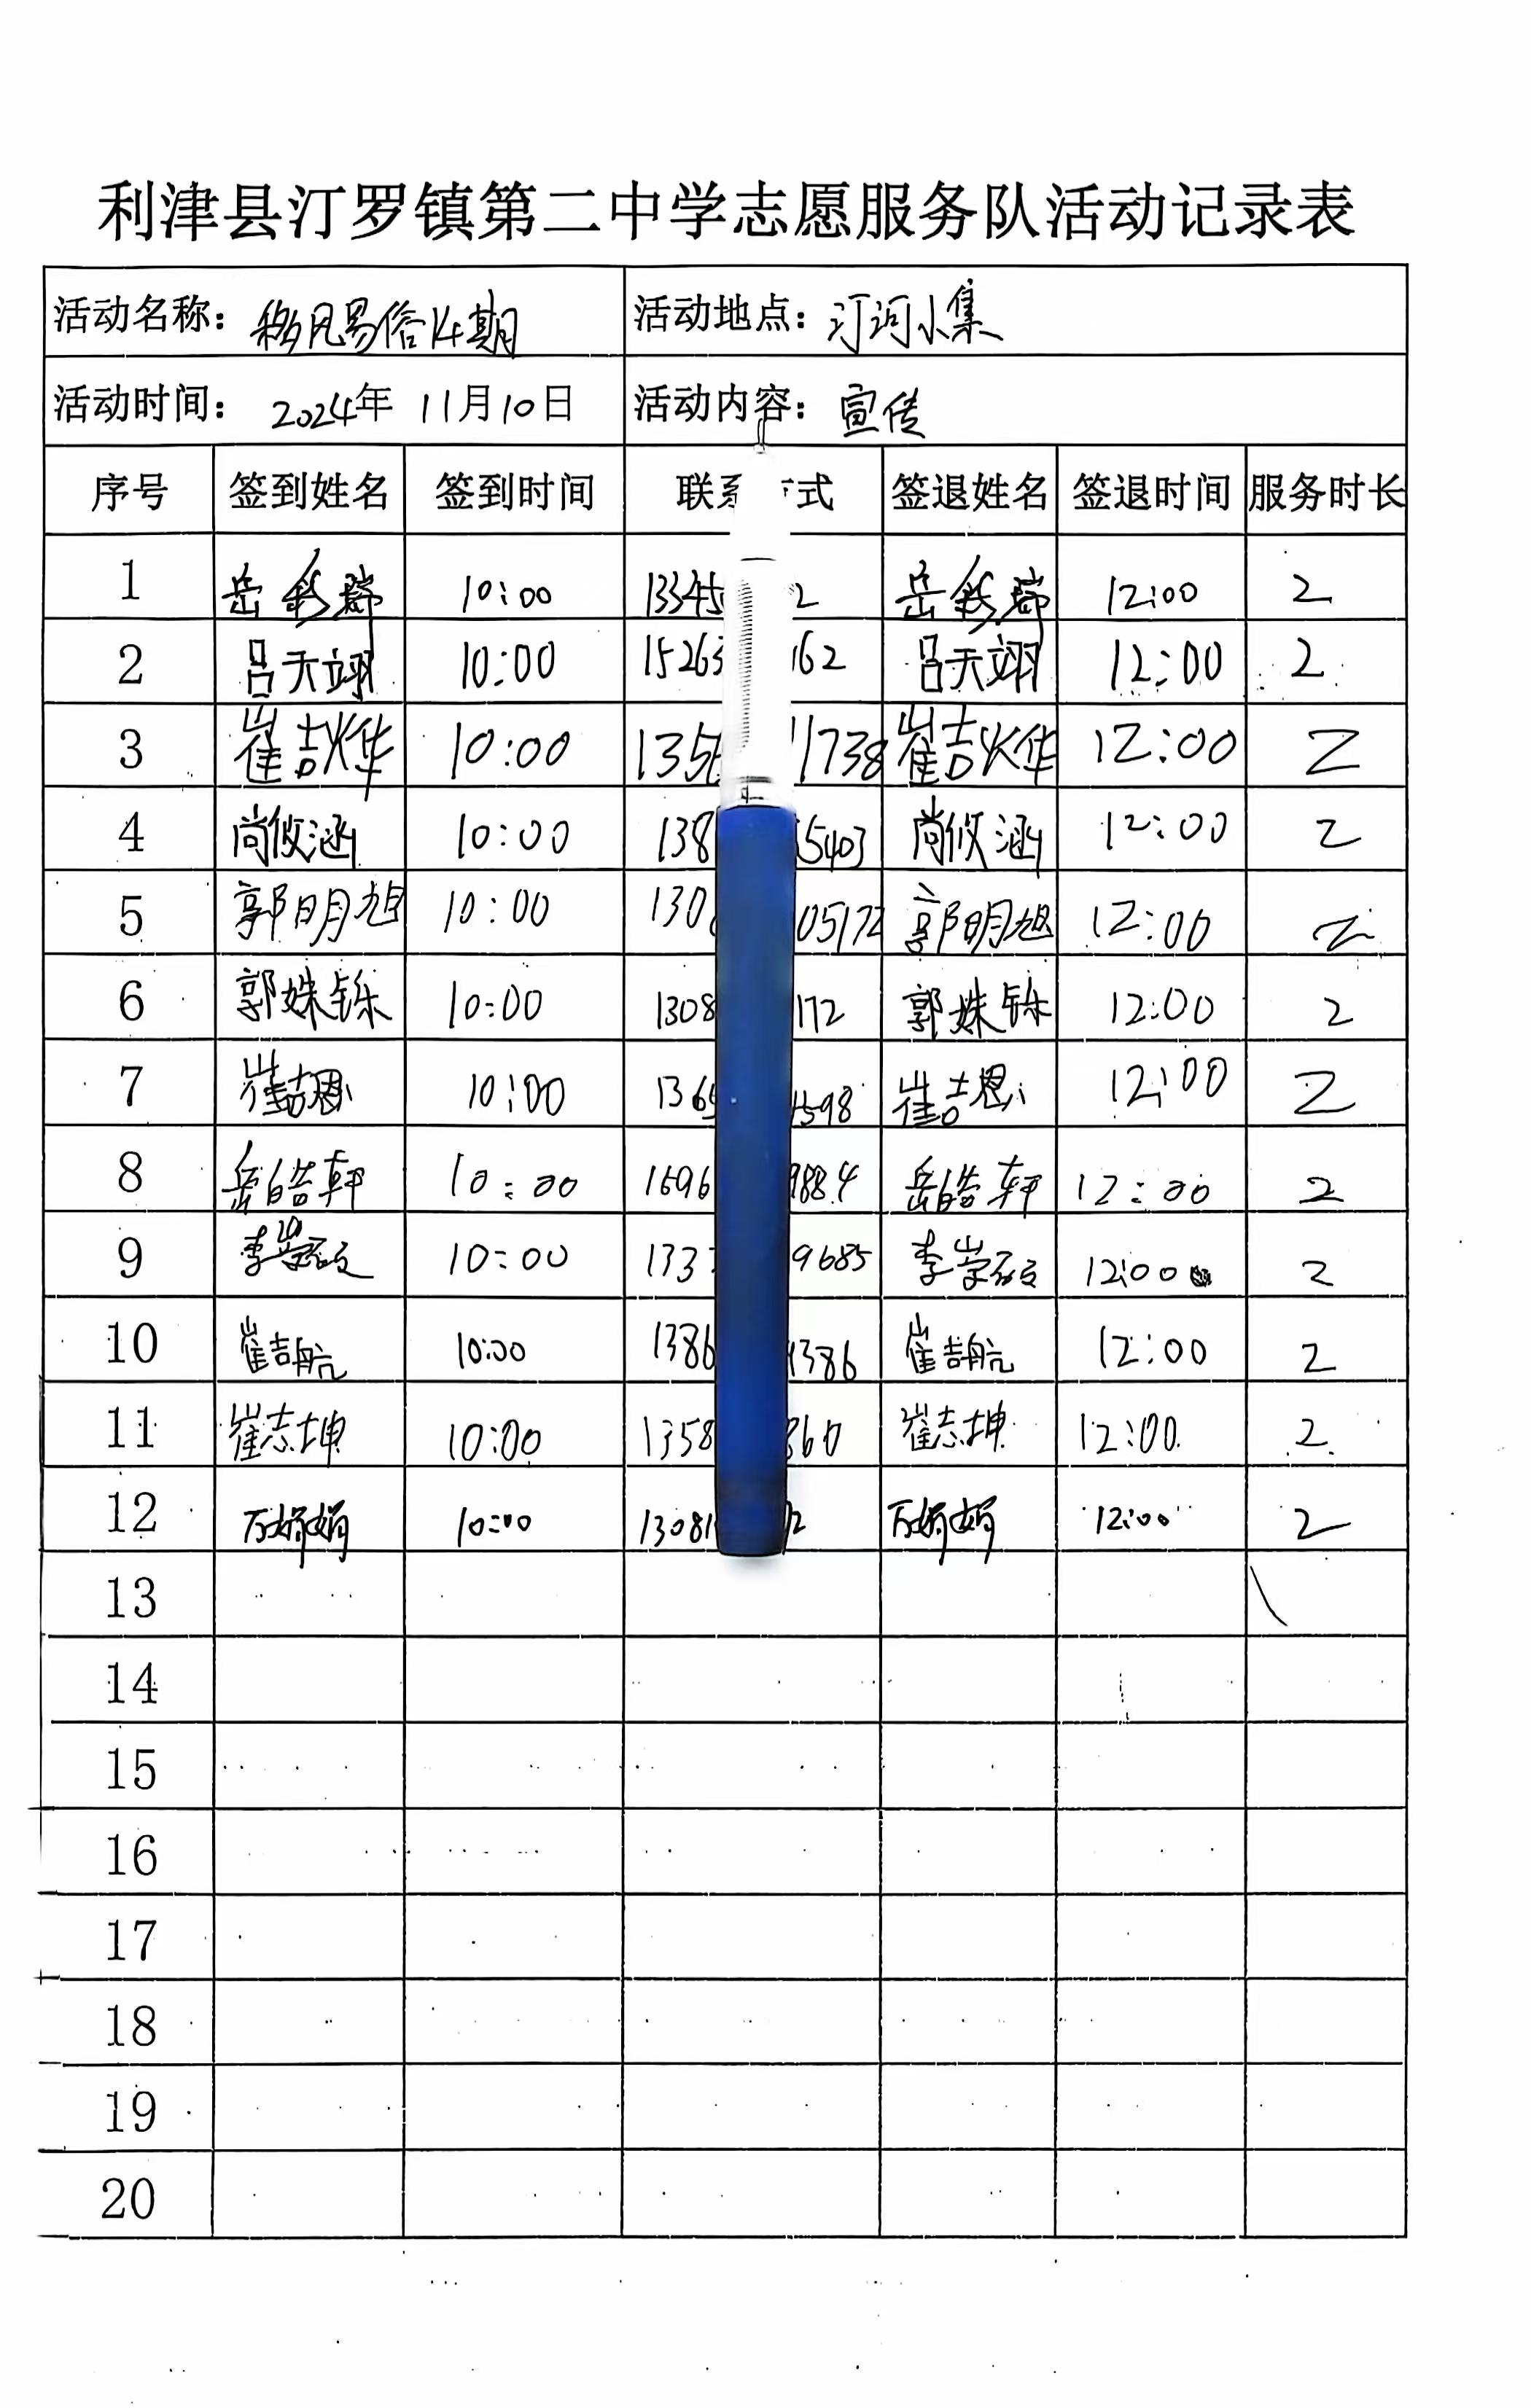 利津县汀罗镇第二中学志愿服务队活动记录表
活动名称：移风易俗14期 活动地点：汀河小集
活动时间：2024年 11月10日 活动内容：宣传
序号 签到姓名 签到时间 联系 式 签退姓名 签退时间 服务时长
1 岳彩瑞 10:00 13345 2 岳彩瑞 12:00 2
2 吕天翊 10:00 15263 162 吕天翊 12:00 2
3 崔吉烨 10:00 135 11738 崔吉烨 12:00 2
4 尚攸涵 10:00 138 5403 尚攸涵 12:00 2
5 郭明旭 10:00 130 05172 郭明旭 12:00 2
6 郭姝铄 10:00 1308 172 郭姝铄 12:00 2
7 崔吉恩 10:00 136 598 崔吉恩 12:00 2
8 岳皓轩 10:00 1696 9884 岳皓轩 12:00 2
9 李崇硕 10:00 133 9685 李崇硕 12:00 2
10 崔吉航 10:00 1386 386 崔吉航 12:00 2
11 崔志坤 10:00 1358 860 崔志坤 12:00 2
12 万娟娟 10:00 13081 2 万娟娟 12:00 2
13
14
15
16
17
18
19
20